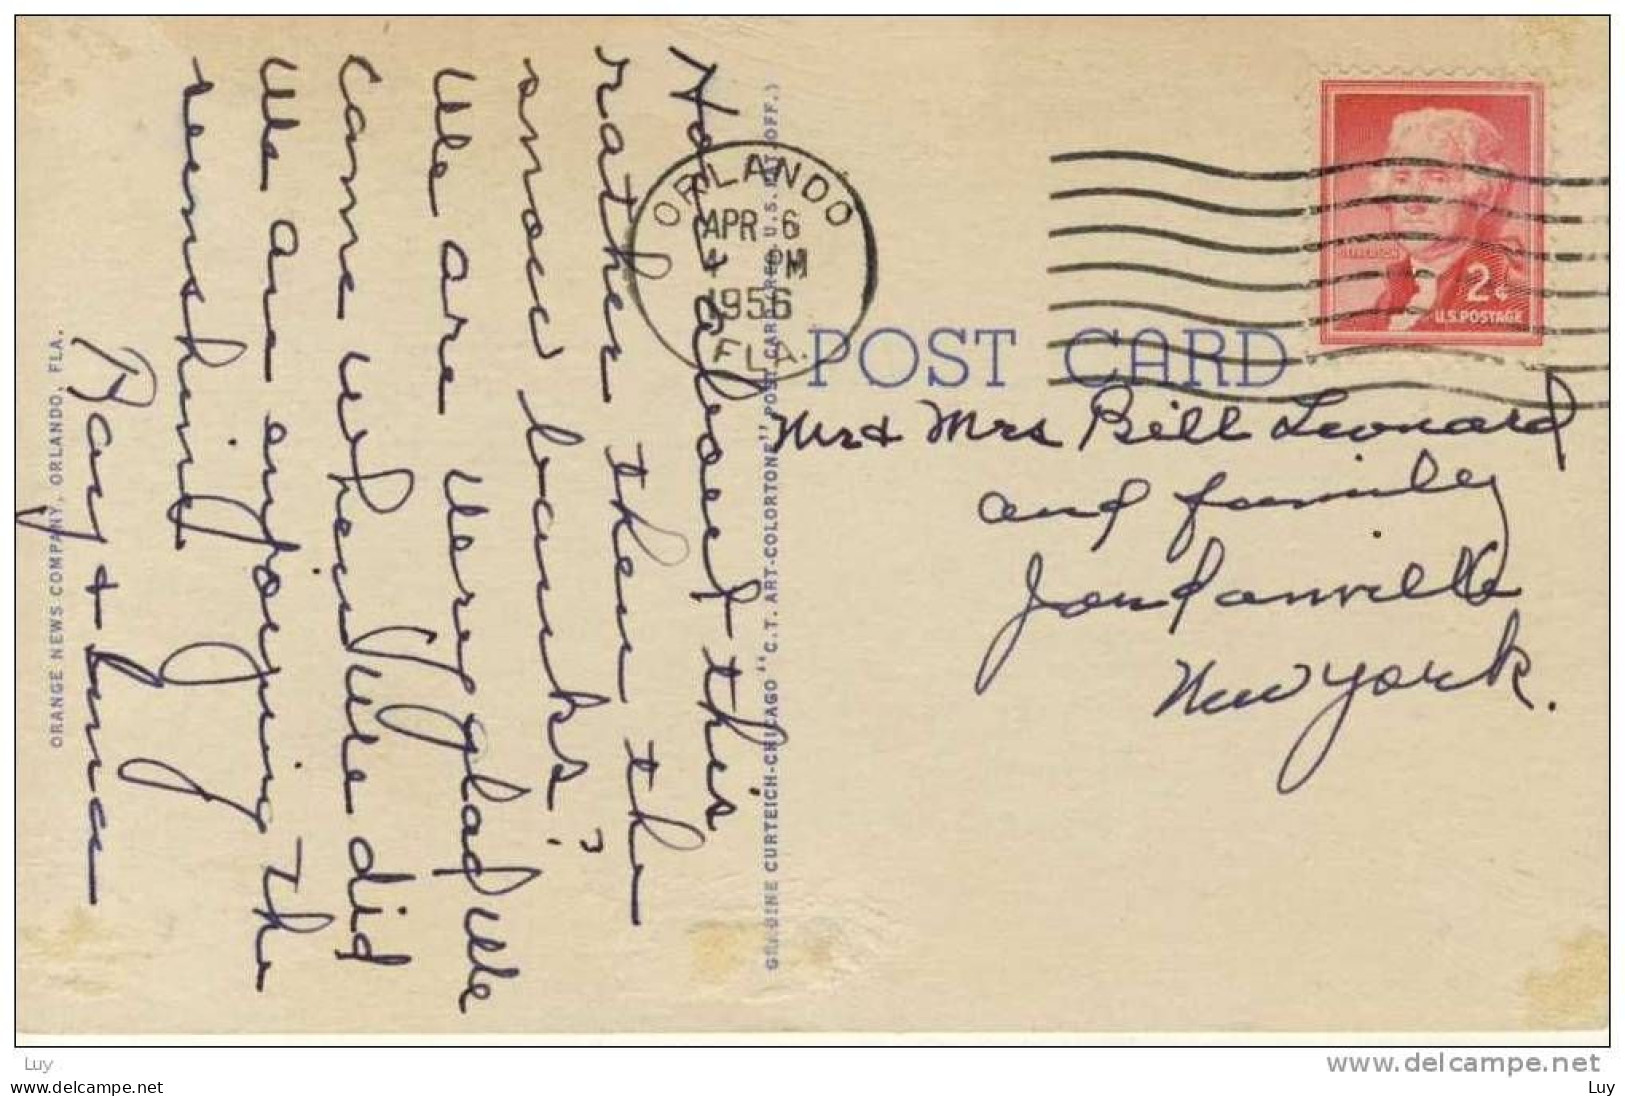 How about this
rather then the
snow banks?
We are very glad we
came when we did
We are enjoying the
sunshine
Ray + Juna
ORANGE NEWS COMPANY, ORLANDO, FLA.
GENUINE CURTEICH-CHICAGO "C.T. ART-COLORTONE" POST CARD (REG. U.S. PAT. OFF.)
ORLANDO
APR 6
4 PM
1956
FLA.
JEFFERSON
2¢
U.S. POSTAGE
POST CARD
Mr + Mrs Bill Leonard
and family
Jordanville
New York.
Luy
www.delcampe.net
www.delcampe.net
Luy